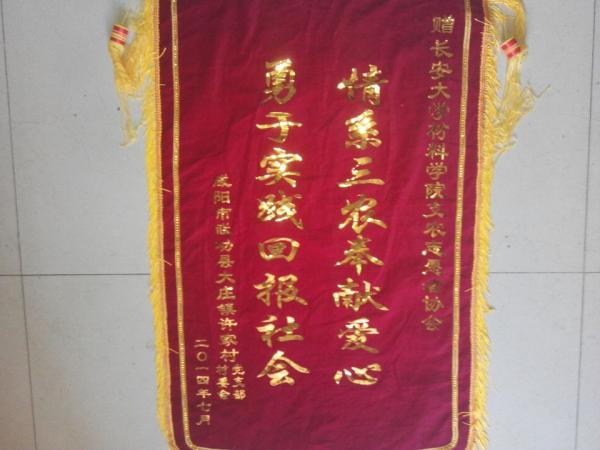 赠长安大学材料学院支农志愿者协会
情系三农奉献爱心
勇于实践回报社会
咸阳市武功县大庄镇许家村党支部
村委会
二〇一四年七月